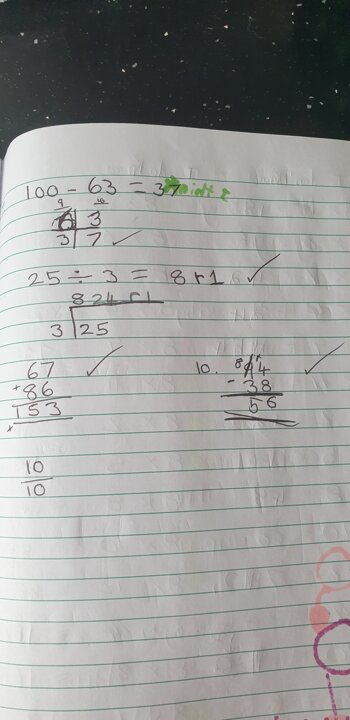 100 - 63 = 37
9 10
6 3
3 7
25 ÷ 3 = 8 r 1
8 24 r1
3 25
67
+ 86
153
10. 8 1 4
- 38
56
10
10